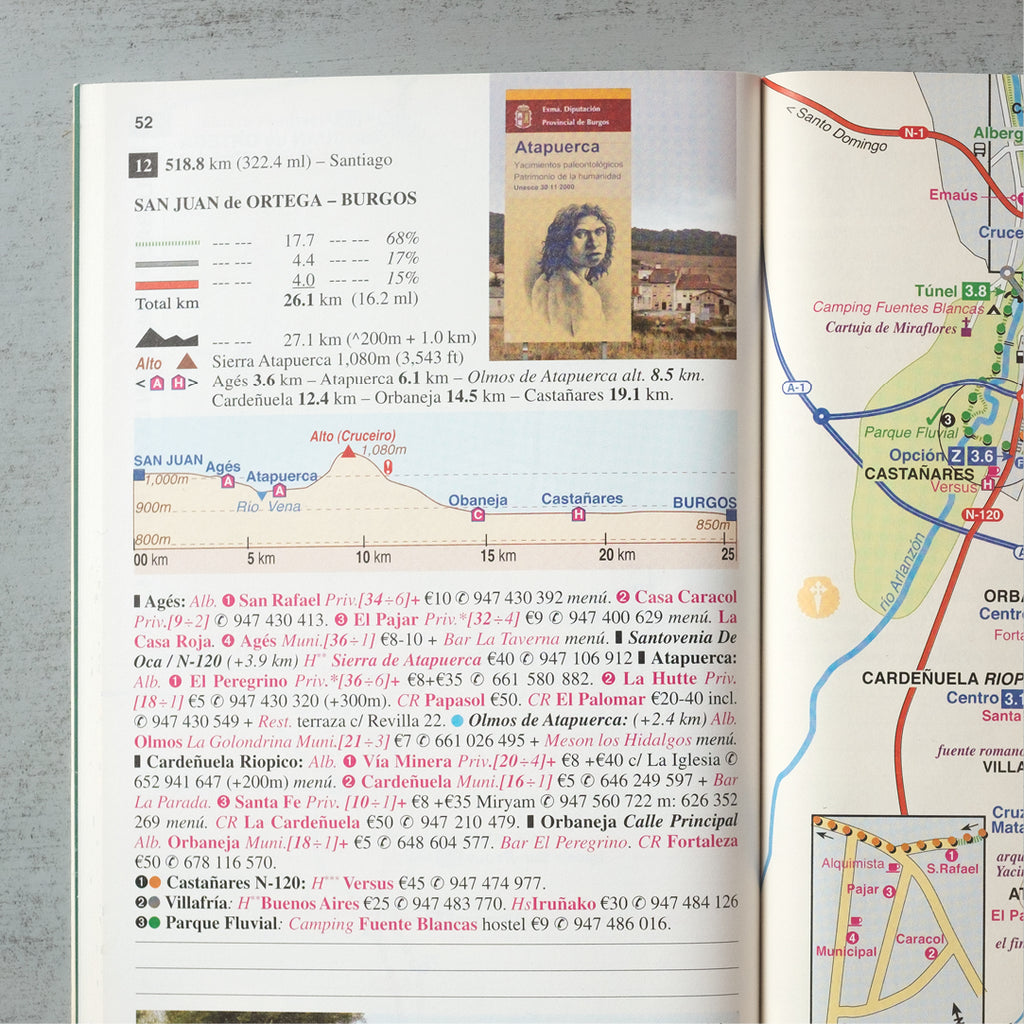 52
12 518.8 km (322.4 ml) – Santiago
SAN JUAN de ORTEGA – BURGOS
--- --- 17.7 --- --- 68%
--- --- 4.4 --- --- 17%
--- --- 4.0 --- --- 15%
Total km 26.1 km (16.2 ml)
--- --- 27.1 km (^200m + 1.0 km)
Alto Sierra Atapuerca 1,080m (3,543 ft)
< A H > Agés 3.6 km – Atapuerca 6.1 km – Olmos de Atapuerca alt. 8.5 km.
Cardeñuela 12.4 km – Orbaneja 14.5 km – Castañares 19.1 km.
Exma. Diputación
Provincial de Burgos
Atapuerca
Yacimientos paleontológicos
Patrimonio de la humanidad
Unesco 30-11-2000
Alto (Cruceiro)
1,080m
SAN JUAN
Agés
Atapuerca
1,000m
A
A
Río Vena
Obaneja
Castañares
BURGOS
900m
C
H
850m
800m
00 km 5 km 10 km 15 km 20 km 25
Agés: Alb. ❶ San Rafael Priv.[34÷6]+ €10 ✆ 947 430 392 menú. ❷ Casa Caracol
Priv.[9÷2] ✆ 947 430 413. ❸ El Pajar Priv.*[32÷4] €9 ✆ 947 400 629 menú. La
Casa Roja. ❹ Agés Muni.[36÷1] €8-10 + Bar La Taverna menú. ▮ Santovenia De
Oca / N-120 (+3.9 km) H** Sierra de Atapuerca €40 ✆ 947 106 912 ▮ Atapuerca:
Alb. ❶ El Peregrino Priv.*[36÷6]+ €8+€35 ✆ 661 580 882. ❷ La Hutte Priv.
[18÷1] €5 ✆ 947 430 320 (+300m). CR Papasol €50. CR El Palomar €20-40 incl.
✆ 947 430 549 + Rest. terraza c/ Revilla 22. ● Olmos de Atapuerca: (+2.4 km) Alb.
Olmos La Golondrina Muni.[21÷3] €7 ✆ 661 026 495 + Meson los Hidalgos menú.
▮ Cardeñuela Riopico: Alb. ❶ Vía Minera Priv.[20÷4]+ €8 +€40 c/ La Iglesia ✆
652 941 647 (+200m) menú. ❷ Cardeñuela Muni.[16÷1] €5 ✆ 646 249 597 + Bar
La Parada. ❸ Santa Fe Priv. [10÷1]+ €8 +€35 Miryam ✆ 947 560 722 m: 626 352
269 menú. CR La Cardeñuela €50 ✆ 947 210 479. ▮ Orbaneja Calle Principal
Alb. Orbaneja Muni.[18÷1]+ €5 ✆ 648 604 577. Bar El Peregrino. CR Fortaleza
€50 ✆ 678 116 570.
❶● Castañares N-120: H*** Versus €45 ✆ 947 474 977.
❷● Villafría: H**Buenos Aires €25 ✆ 947 483 770. HsIruñako €30 ✆ 947 484 126
❸● Parque Fluvial: Camping Fuente Blancas hostel €9 ✆ 947 486 016.
< Santo Domingo
N-1
Alberg
Emaús
Cruce
Túnel 3.8
Camping Fuentes Blancas
Cartuja de Miraflores
A-1
3
Parque Fluvial
Opción Z 3.6
CASTAÑARES
Versus H
N-120
río Arlanzón
ORBA
Centro
Forta
CARDEÑUELA RIOP
Centro 3.1
Santa
fuente romano
VILLA
Cruz
Mata
arqu
Yacin
AT
El Pa
el fin
Alquimista
1
S.Rafael
Pajar 3
4
Municipal
Caracol
2